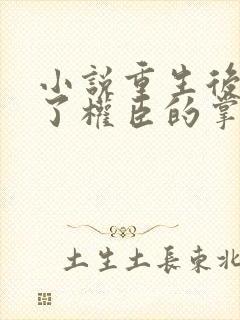 小說重生後
了權臣的掌
土生土長東北